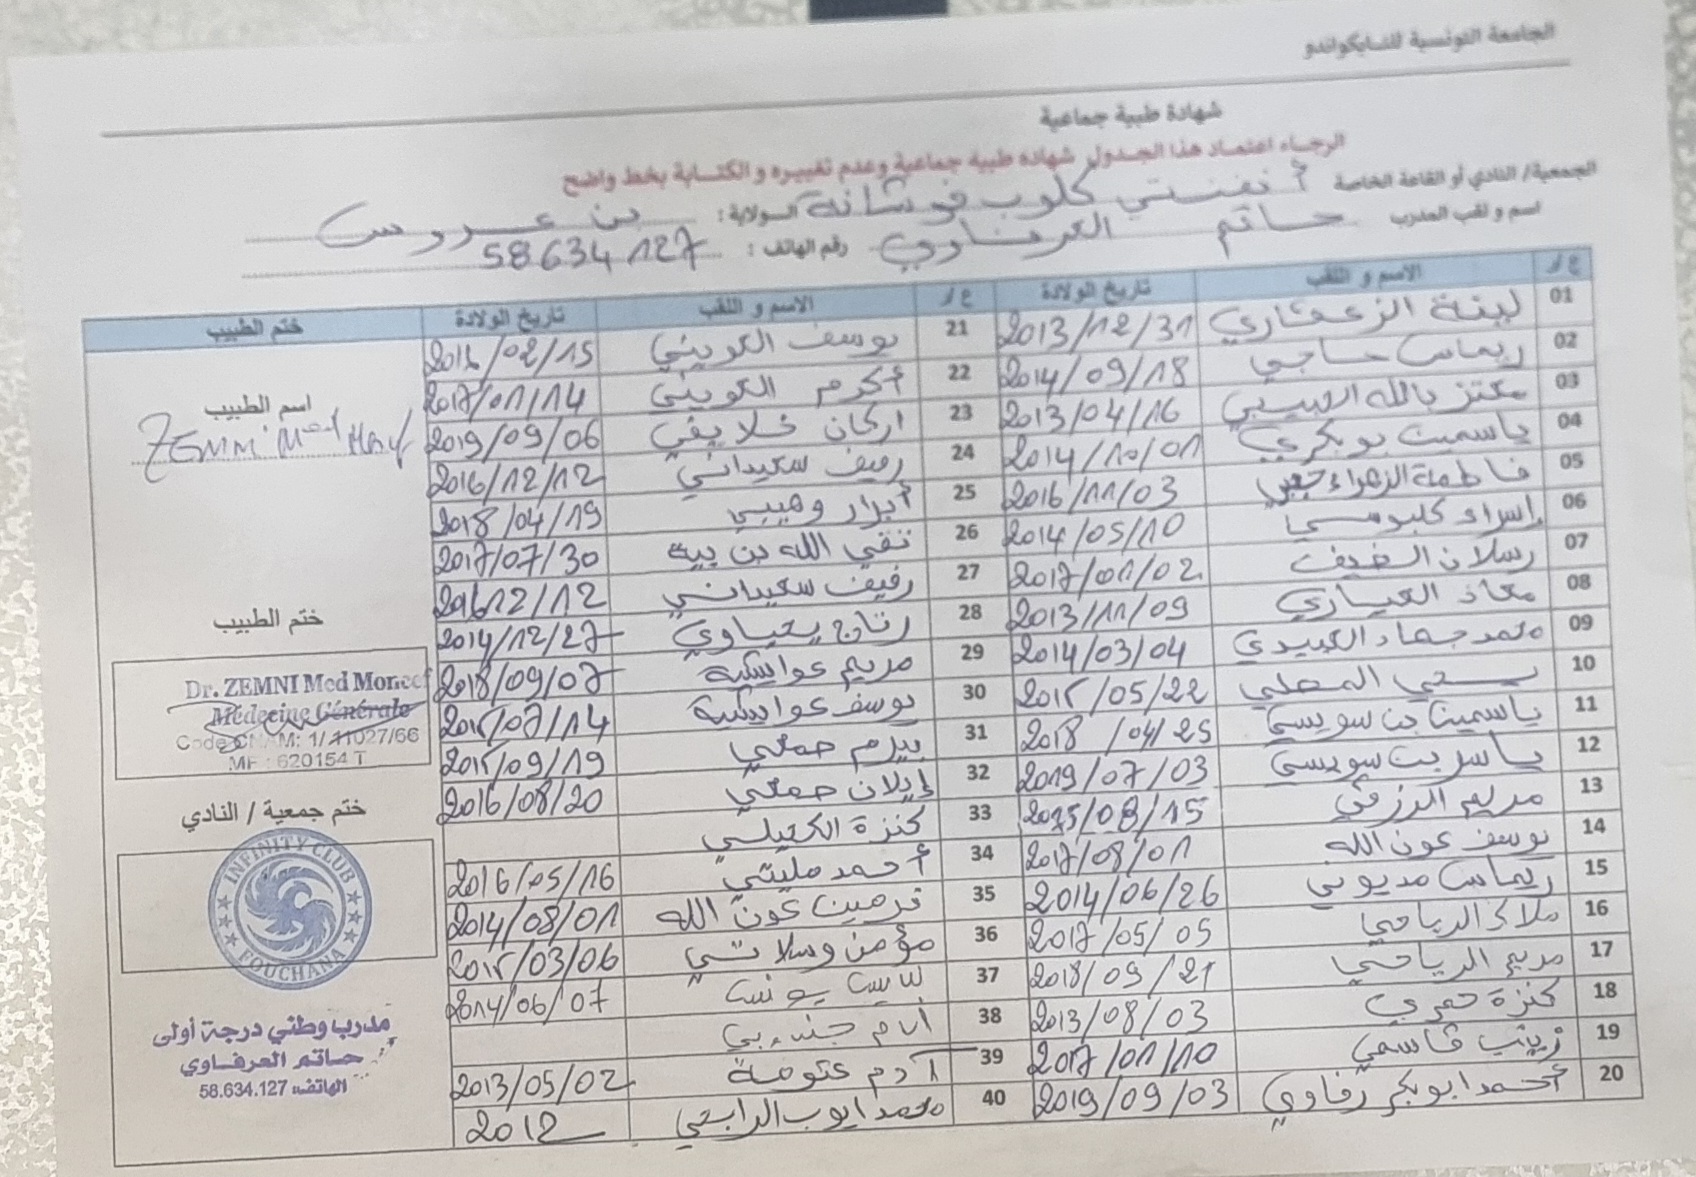 الجامعة التونسية للتايكواندو
شهادة طبية جماعية
الرجاء اعتماد هذا الجدول شهادة طبية جماعية وعدم تغييره و الكتابة بخط واضح
الجمعية/ النادي أو القاعة الخاصة أنفنتي كلوب فوشانة الولاية: بن عروس
اسم و لقب المدرب حاتم العرفاوي رقم الهاتف: 58634127
ع/ر الاسم و اللقب تاريخ الولادة ع/ر الاسم و اللقب تاريخ الولادة ختم الطبيب
01 لبنة الزعفاري 2013/12/31
02 ريماس حاجي 2014/09/18
03 معتز بالله العبيبي 2013/04/16
04 ياسمين بوبكري 2014/10/01
05 فاطمة الزهراء 2016/11/03
06 إسراء كلبوسي 2014/05/10
07 رسلان الضيف 2017/01/02
08 معاذ العياري 2013/11/09
09 محمد جهاد العبيدي 2014/03/04
10 يحي المحلي 2015/05/22
11 ياسمين بن سويسي 2018/04/25
12 ياسر بن سويسي 2019/07/03
13 مريم الرزقي 08/15
14 يوسف عون الله 2017/08/01
15 ريماس مديوني 2014/06/26
16 ملاك الرياحي 2017/05/05
17 مريم الرياحي 2018/09/21
18 كنزة حمدي 2013/08/03
19 زينب قاسمي 2017/01/10
20 أحمد ابوبكر رفاوي 2019/09/03
21 يوسف الكويني 2016/02/15
22 أكرم الكويني 2017/01/14
23 اركان خلايفي 2019/09/06
24 رفيف سعيداني 2016/12/12
25 أبرار وهيبي 2018/04/19
26 تقي الله بن بية 2017/07/30
27 رفيف سعيداني 201612/12
28 رتاج يحياوي 2014/12/27
29 مريم عوايشية 2018/09/07
30 يوسف عوايشية 2015/07/14
31 بيرم حمعي 2015/09/19
32 إيلان حمعي 2016/08/20
33 كنزة الكحيلي
34 أحمد مليتي 2016/05/16
35 نرمين عون الله 2014/08/01
36 مؤمن وسلاتي 2015/03/06
37 يونس 2014/06/07
38
39 آدم عتومة 2013/05/02
40 محمد ايوب الرابحي 2012
اسم الطبيب
ZEMNI Med
ختم الطبيب
Dr. ZEMNI Med Moncef
Médecine Générale
Code CNAM: 1/11027/66
MF : 620154 T
ختم جمعية / النادي
INFINITY CLUB
FOUCHANA
مدرب وطني درجة أولى
حاتم العرفاوي
الهاتف: 58.634.127